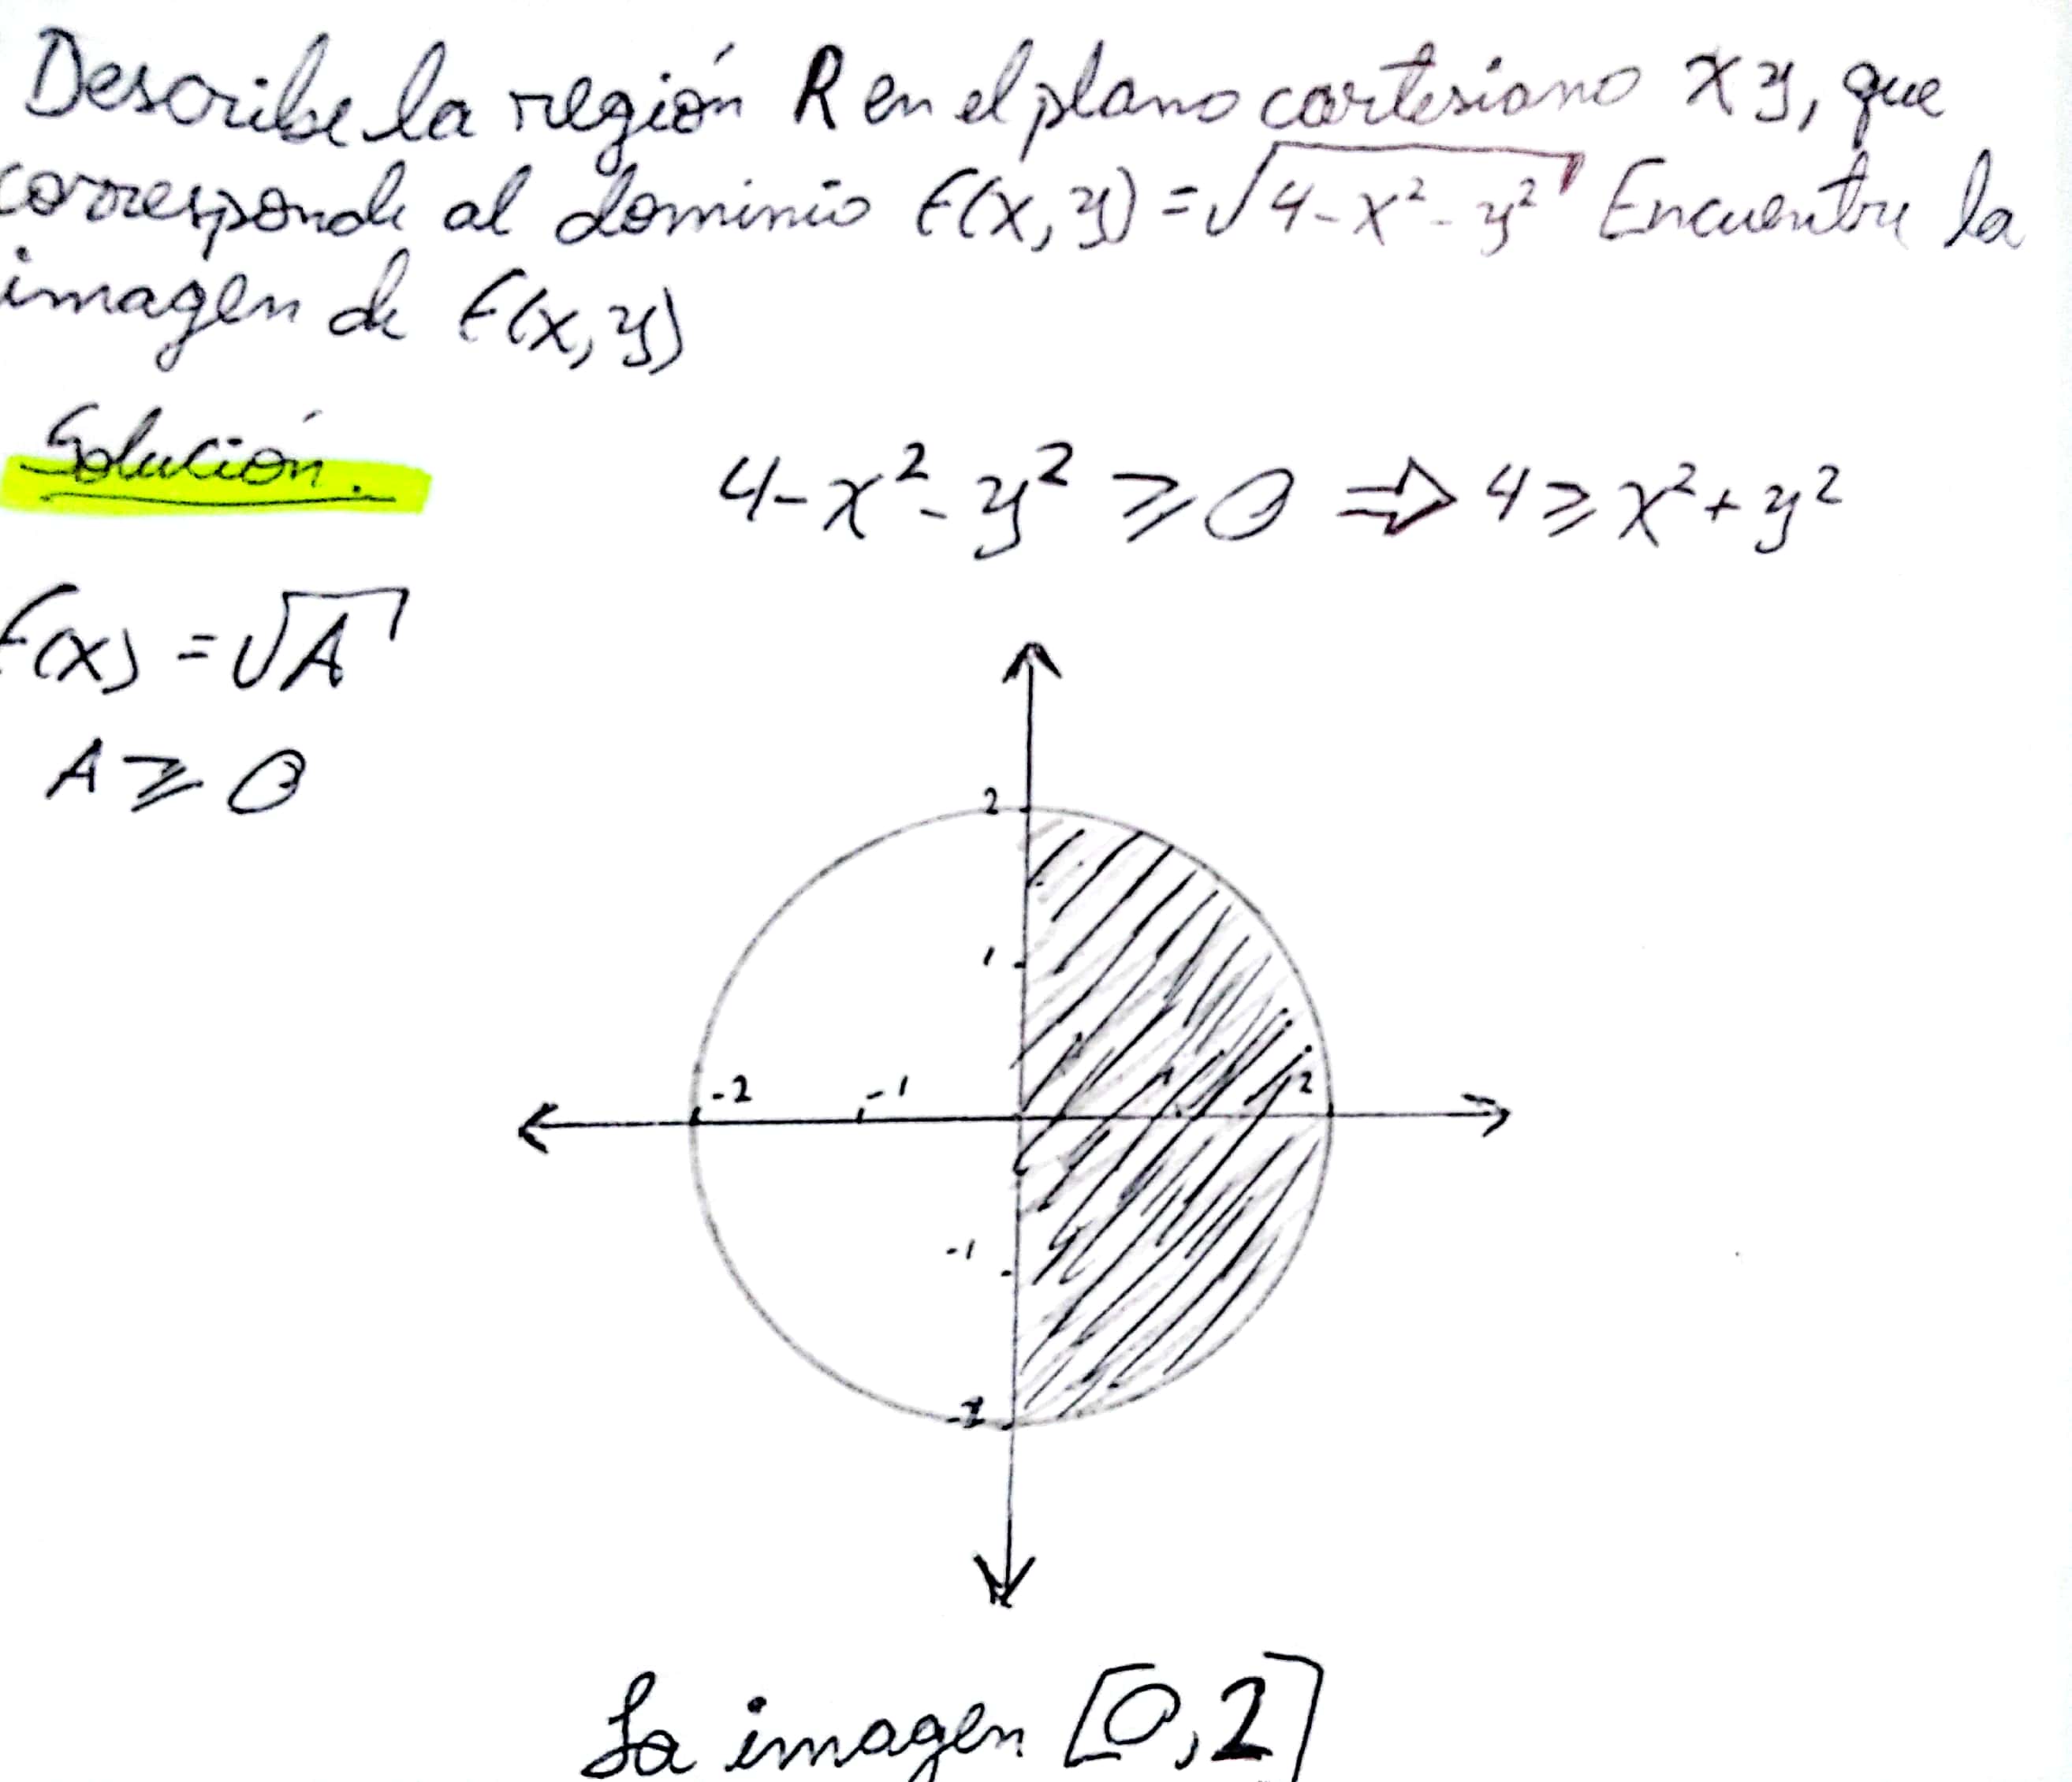 Describe la región R en el plano cartesiano xy, que
corresponde al dominio f(x,y)=√4-x²-y² Encuentre la
imagen de f(x,y)
Solución.
4-x²-y² ≥ 0 ⇒ 4 ≥ x²+y²
f(x) = √A
A ≥ 0
2
1
-2 -1 1 2
-1
-2
La imagen [0,2]